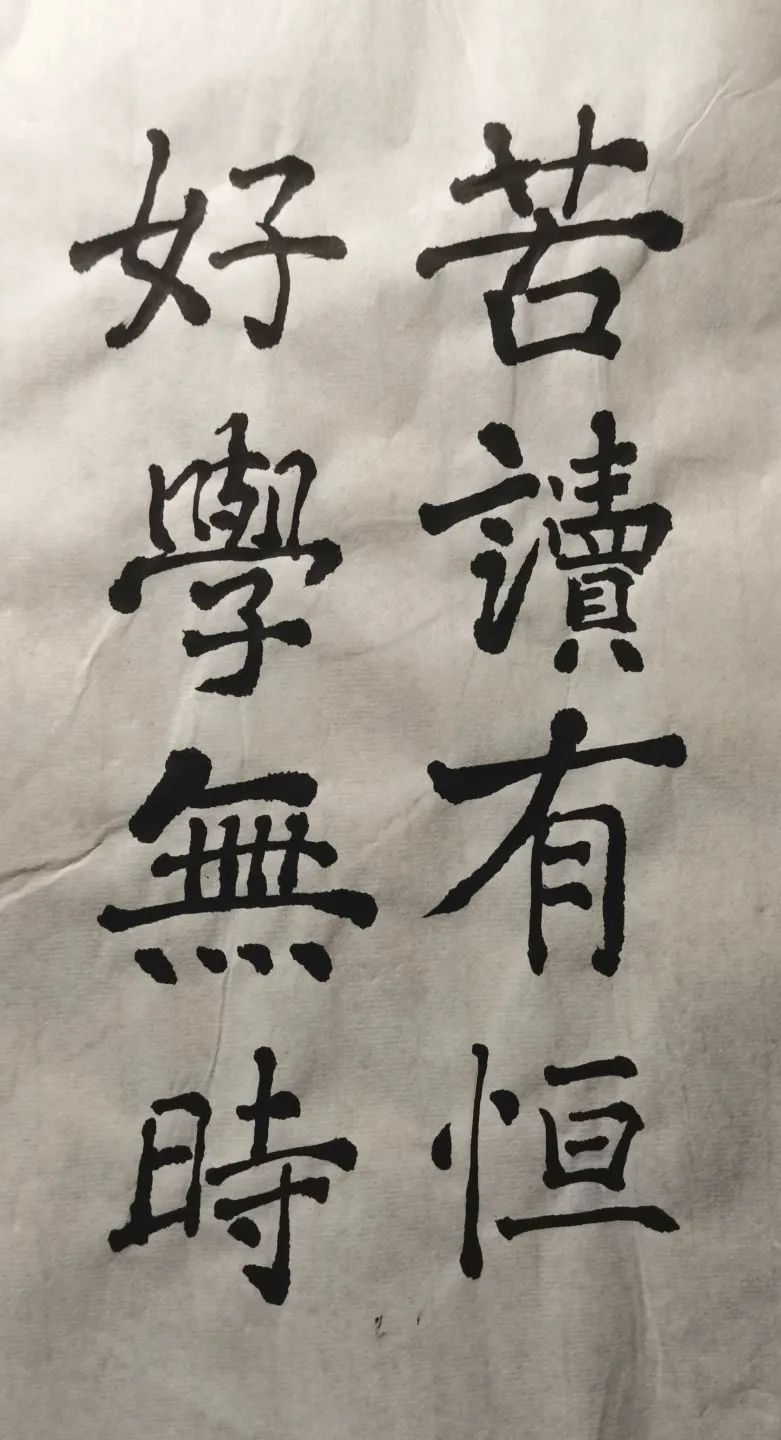 苦讀有恒
好學無時